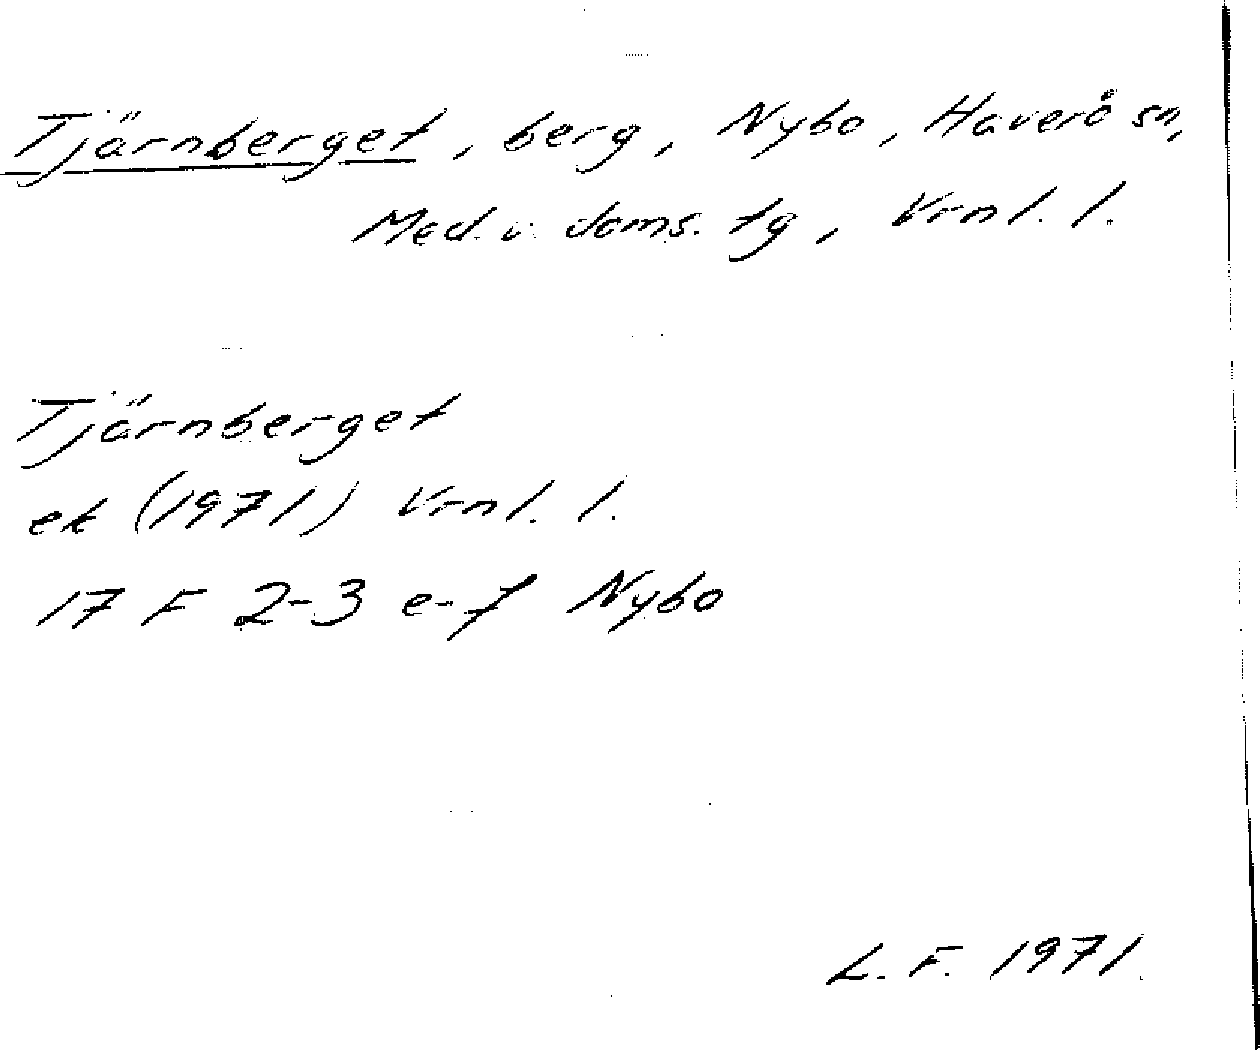 Tjärnberget, berg, Nybo, Haverö sn,
Med. v. doms. tg, Vrnl. l.
Tjärnberget
ek (1971) Vrnl. l.
17 F 2-3 e-f Nybo
L. F. 1971.